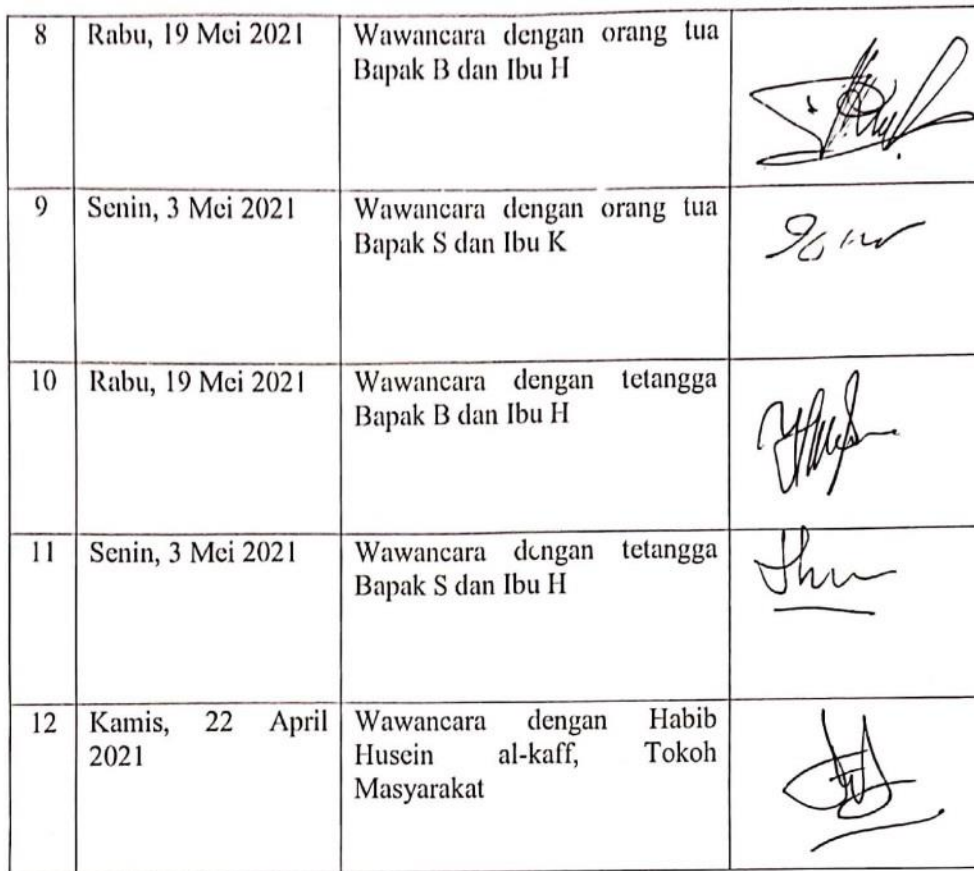 8 Rabu, 19 Mei 2021 Wawancara dengan orang tua
Bapak B dan Ibu H
9 Senin, 3 Mei 2021 Wawancara dengan orang tua
Bapak S dan Ibu K
10 Rabu, 19 Mei 2021 Wawancara dengan tetangga
Bapak B dan Ibu H
11 Senin, 3 Mei 2021 Wawancara dengan tetangga
Bapak S dan Ibu H
12 Kamis, 22 April Wawancara dengan Habib
2021 Husein al-kaff, Tokoh
Masyarakat